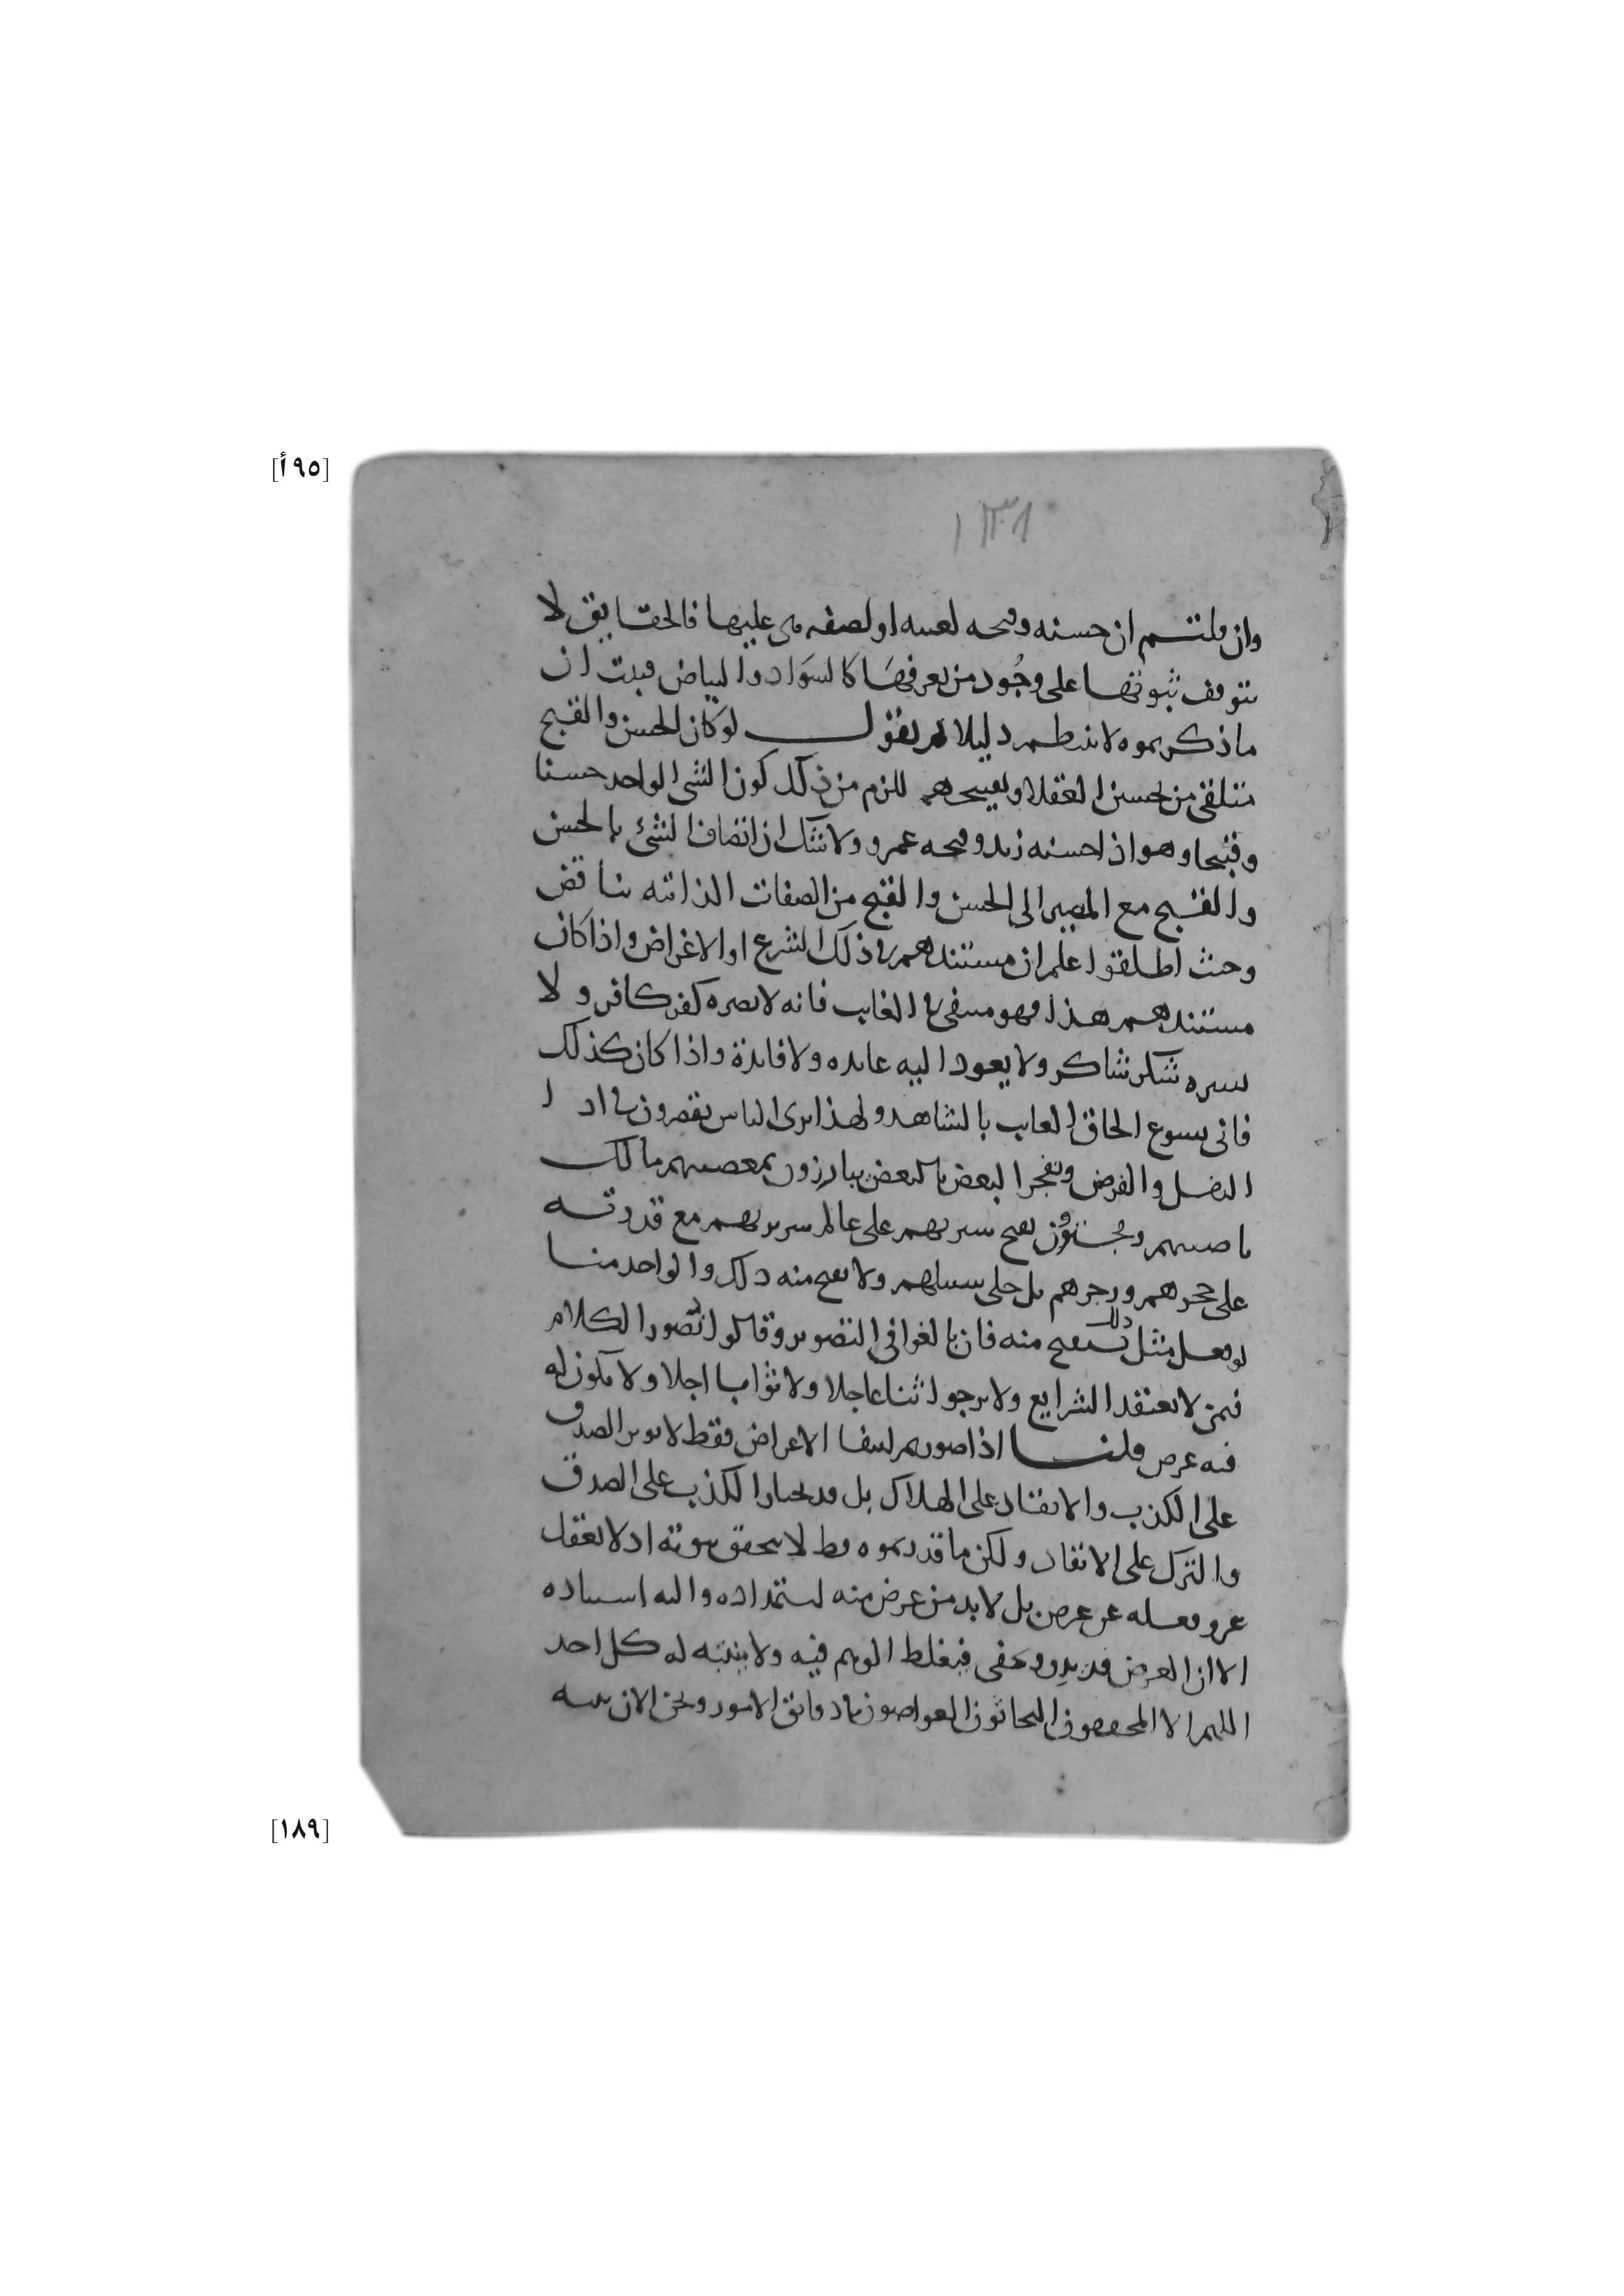 [٩٥أ]
١٣١
وان قلتم ان حسنه وقبحه لعينه او لصفة هى عليها فالحقايق لا
تتوقف ثبوتها على وجُود من يعرفهَا كالسوَاد والبياض فبت ان
ما ذكرتموه لا ينتظم دليلا ثم نقول لو كان الحسن والقبح
متلقى من تحسين العقلا وتقبيحهم للزم من ذلك كون الشى الواحد حسنا
وقبيحا وهو اذا حسنه زيد وقبحه عمرو ولا شك ان اتصاف الشئ بالحسن
والقبح مع المصير الى الحسن والقبح من الصفات الذاتيه يناقض
وحيث اطلقوا علم ان مستندهم فى ذلك الشرع او الاغراض واذا كان
مستندهم هذا فهو منتفى فى الغايب فانه لا يضره كفر كافر ولا
يسره شكر شاكر ولا يعود اليه عايده ولا فايدة واذا كان كذلك
فانى يسوغ الحاق الغايب بالشاهد ولهذا يرى الناس يقصرون فى ادا
النفل والفرض ويفجر البعض بالبعض يبارزون بمعصيتهم مالك
ناصيتهم قبح سريرتهم على عالم سريرتهم مع قدرته
على حجزهم وزجرهم بل خلى سبيلهم ولا يقبح منه ذلك والواحد منا
لو فعل مثل ذلك يقبح منه فان بالغوا فى التصوير وقالوا نصور الكلام
فيمن لا يعتقد الشرايع ولا يرجو ثنا عاجلا ولا ثوابا اجلا ولا يكون له
فيه غرض قلنا اذا صورتم انتفا الاغراض فقط لا يوثر الصدق
على الكذب والانقاد على الهلاك بل قد يختار الكذب على الصدق
والترك على الانقاد ولكن ما قدرتموه قط لا يتحقق ثبوته اذ لا يعقل
عرو فعله عن غرض بل لا بد من غرض منه استمداده واليه استناده
الا ان الغرض قد يبدو ويخفى فيغلط الوهم فيه ولا يتنبه له كل احد
اللهم الا المحققون البحاثون الغواصون فى دقائق الامور ونحن الان
[١٨٩]